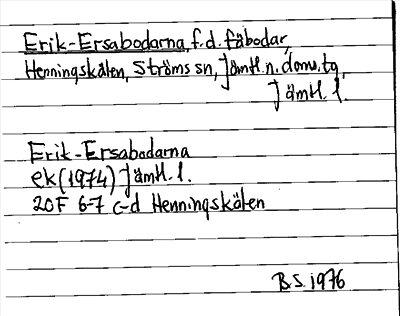 Erik-Ersabodarna, f.d. fäbodar,
Henningskälen, Ströms sn, Jämtl. n. doms. tg,
Jämtl. l.
Erik-Ersabodarna
ek (1974) Jämtl. l.
20F 6-7 c-d Henningskälen
B.S. 1976